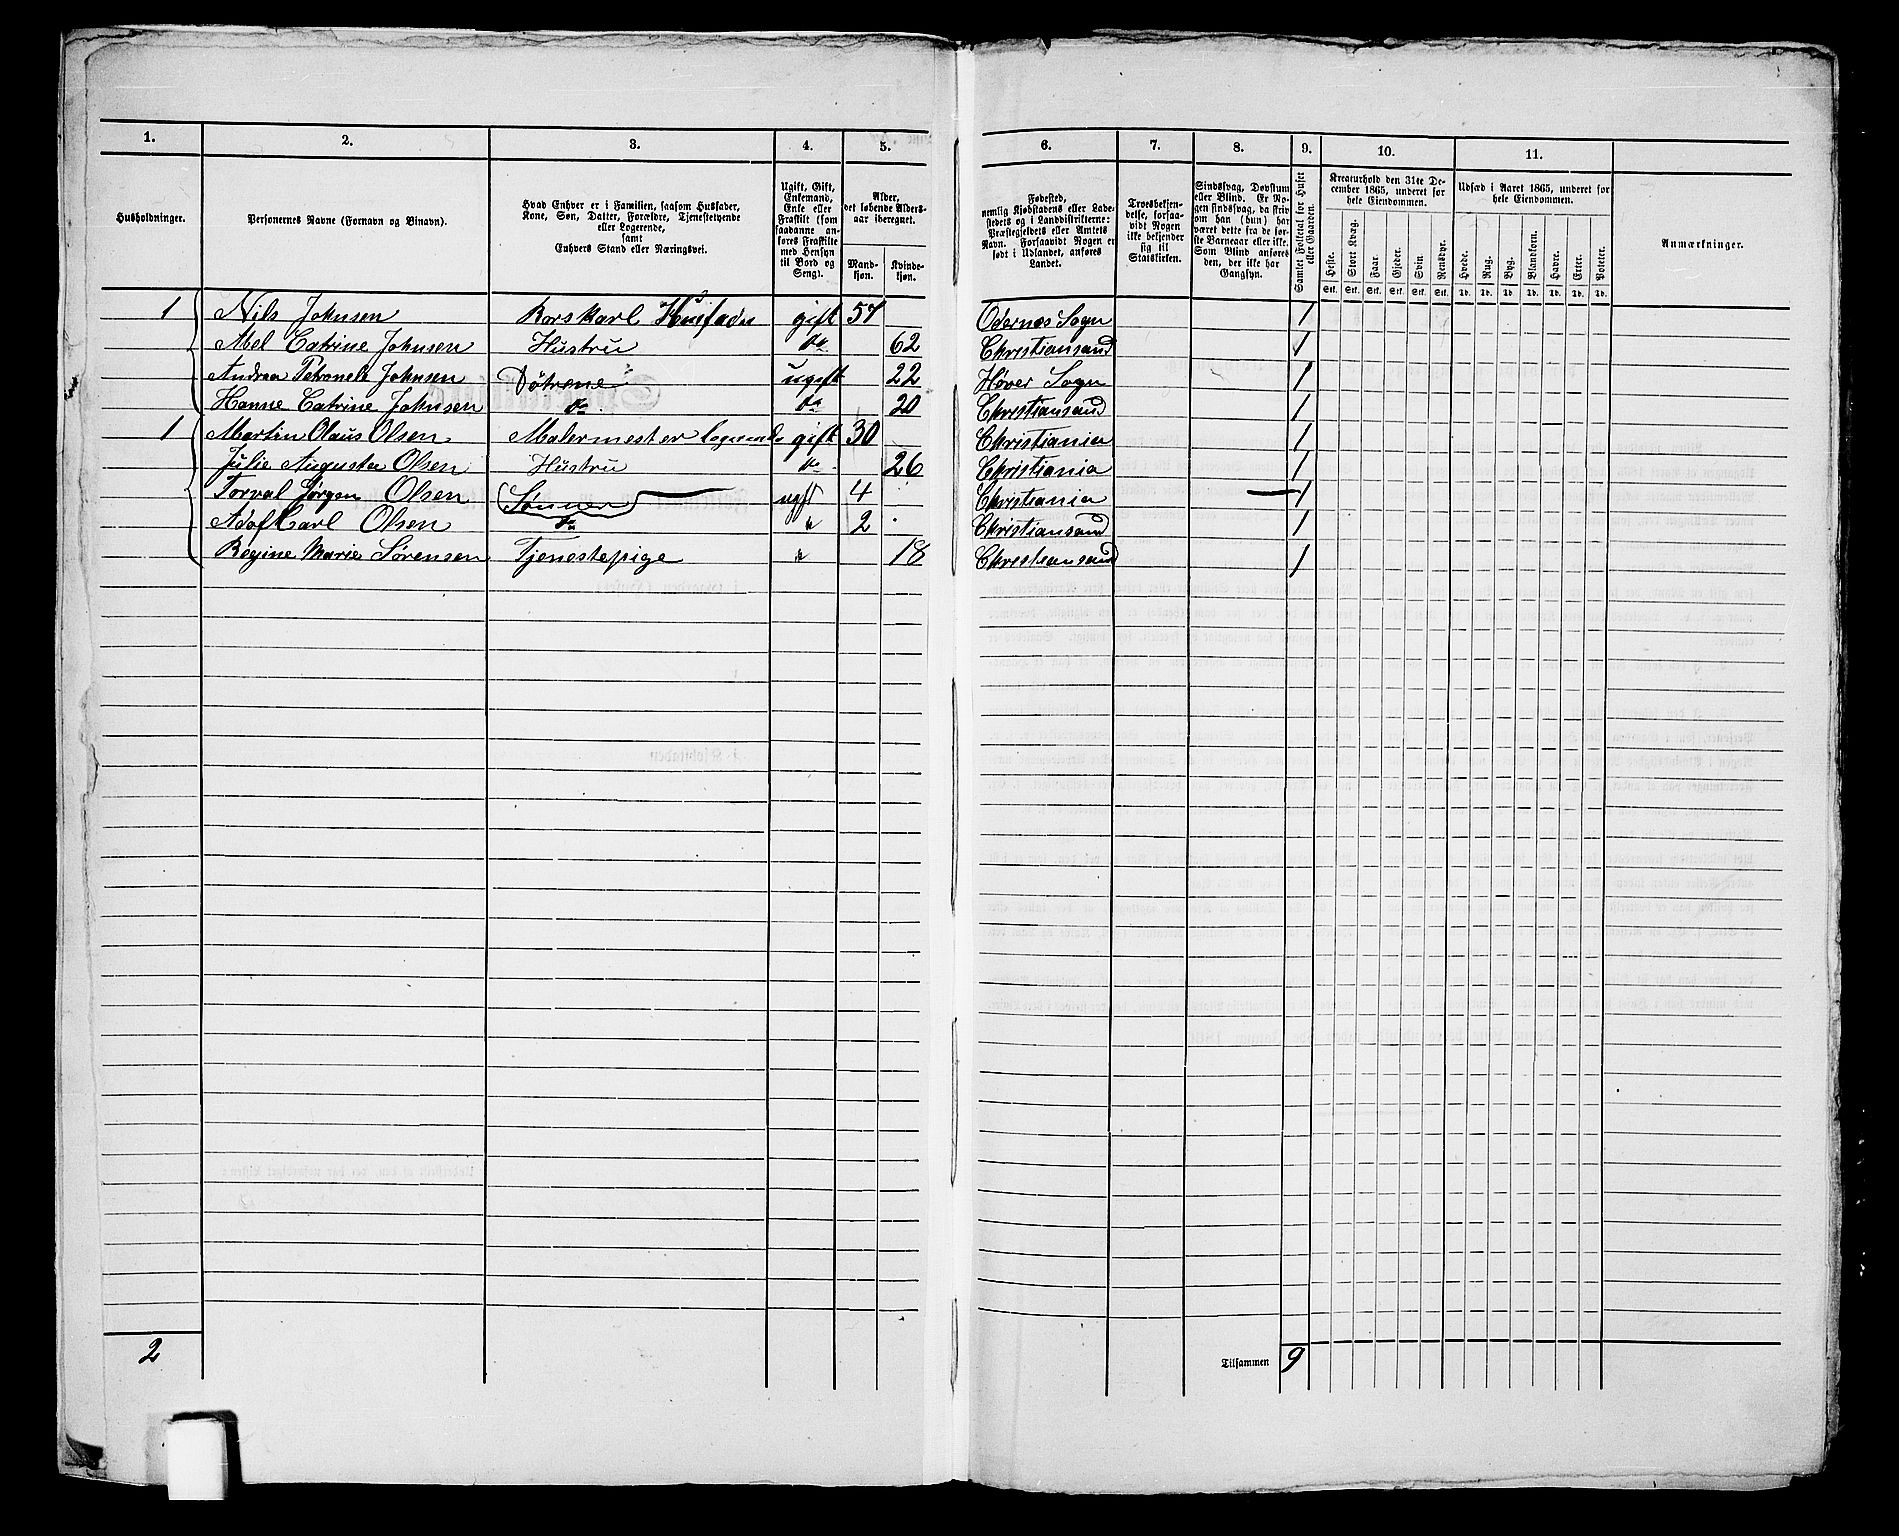 1. 2. 3. 4. 5. 6. 7. 8. 9. 10. 11.
Husholdninger.
Personernes Navne (Fornavn og Binavn).
Hvad Enhver er i Familien, saasom Husfader,
Kone, Søn, Datter, Forældre, Tjenestetyende
eller Logerende,
samt
Enhvers Stand eller Næringsvei.
Ugift, Gift,
Enkemand,
Enke eller
Fraskilt (som
saadanne an-
føres Fraskilte
med Hensyn
til Bord og
Seng).
Alder,
det løbende Alders-
aar iberegnet.
Mand-
kjøn.
Kvinde-
kjøn.
Fødested,
nemlig Kjøbstadens eller Lade-
stedets og i Landdistrikterne:
Præstegjeldets eller Amtets
Navn. Forsaavidt Nogen er
født i Udlandet, anføres
Landet.
Troesbekjen-
delse, forsaa-
vidt Nogen
ikke bekjender
sig til
Statskirken.
Sindssvag, Døvstum
eller Blind. Er No-
gen sindssvag, da skriv
om han (hun) har
været dette fra de før-
ste Barneaar eller ikke.
Som Blind anføres
den, der ikke har
Gangsyn.
Samlet Folketal for Huset
eller Gaarden.
Kreaturhold den 31te De-
cember 1865, underet for
hele Eiendommen.
Heste. Stort Kvæg. Faar. Gjeder. Svin. Rensdyr.
Stk. Stk. Stk. Stk. Stk. Stk.
Udsæd i Aaret 1865, underet for
hele Eiendommen.
Hvede. Rug. Byg. Blandkorn. Havre. Erter. Poteter.
Td. Td. Td. Td. Td. Td. Td.
Anmærkninger.
1 Nils Johnsen Borskarl Husfader gift 57 Odernes Sogn 1
Abel Catrine Johnsen Hustru do 62 Christiansand 1
Andrea Petronele Johnsen Døtrene ugift 22 Høver Sogn 1
Hanne Catrine Johnsen do do 20 Christiansand 1
1 Martin Olaus Olsen Malermester Logerende gift 30 Christiania 1
Julie Augusta Olsen Hustru do 26 Christiania 1
Torval Jørgen Olsen Sønner ugift 4 Christiania 1
Adof Carl Olsen do " 2 Christiansand 1
Regine Marie Sørensen Tjenestepige " 18 Christiansand 1
2 Tilsammen 9